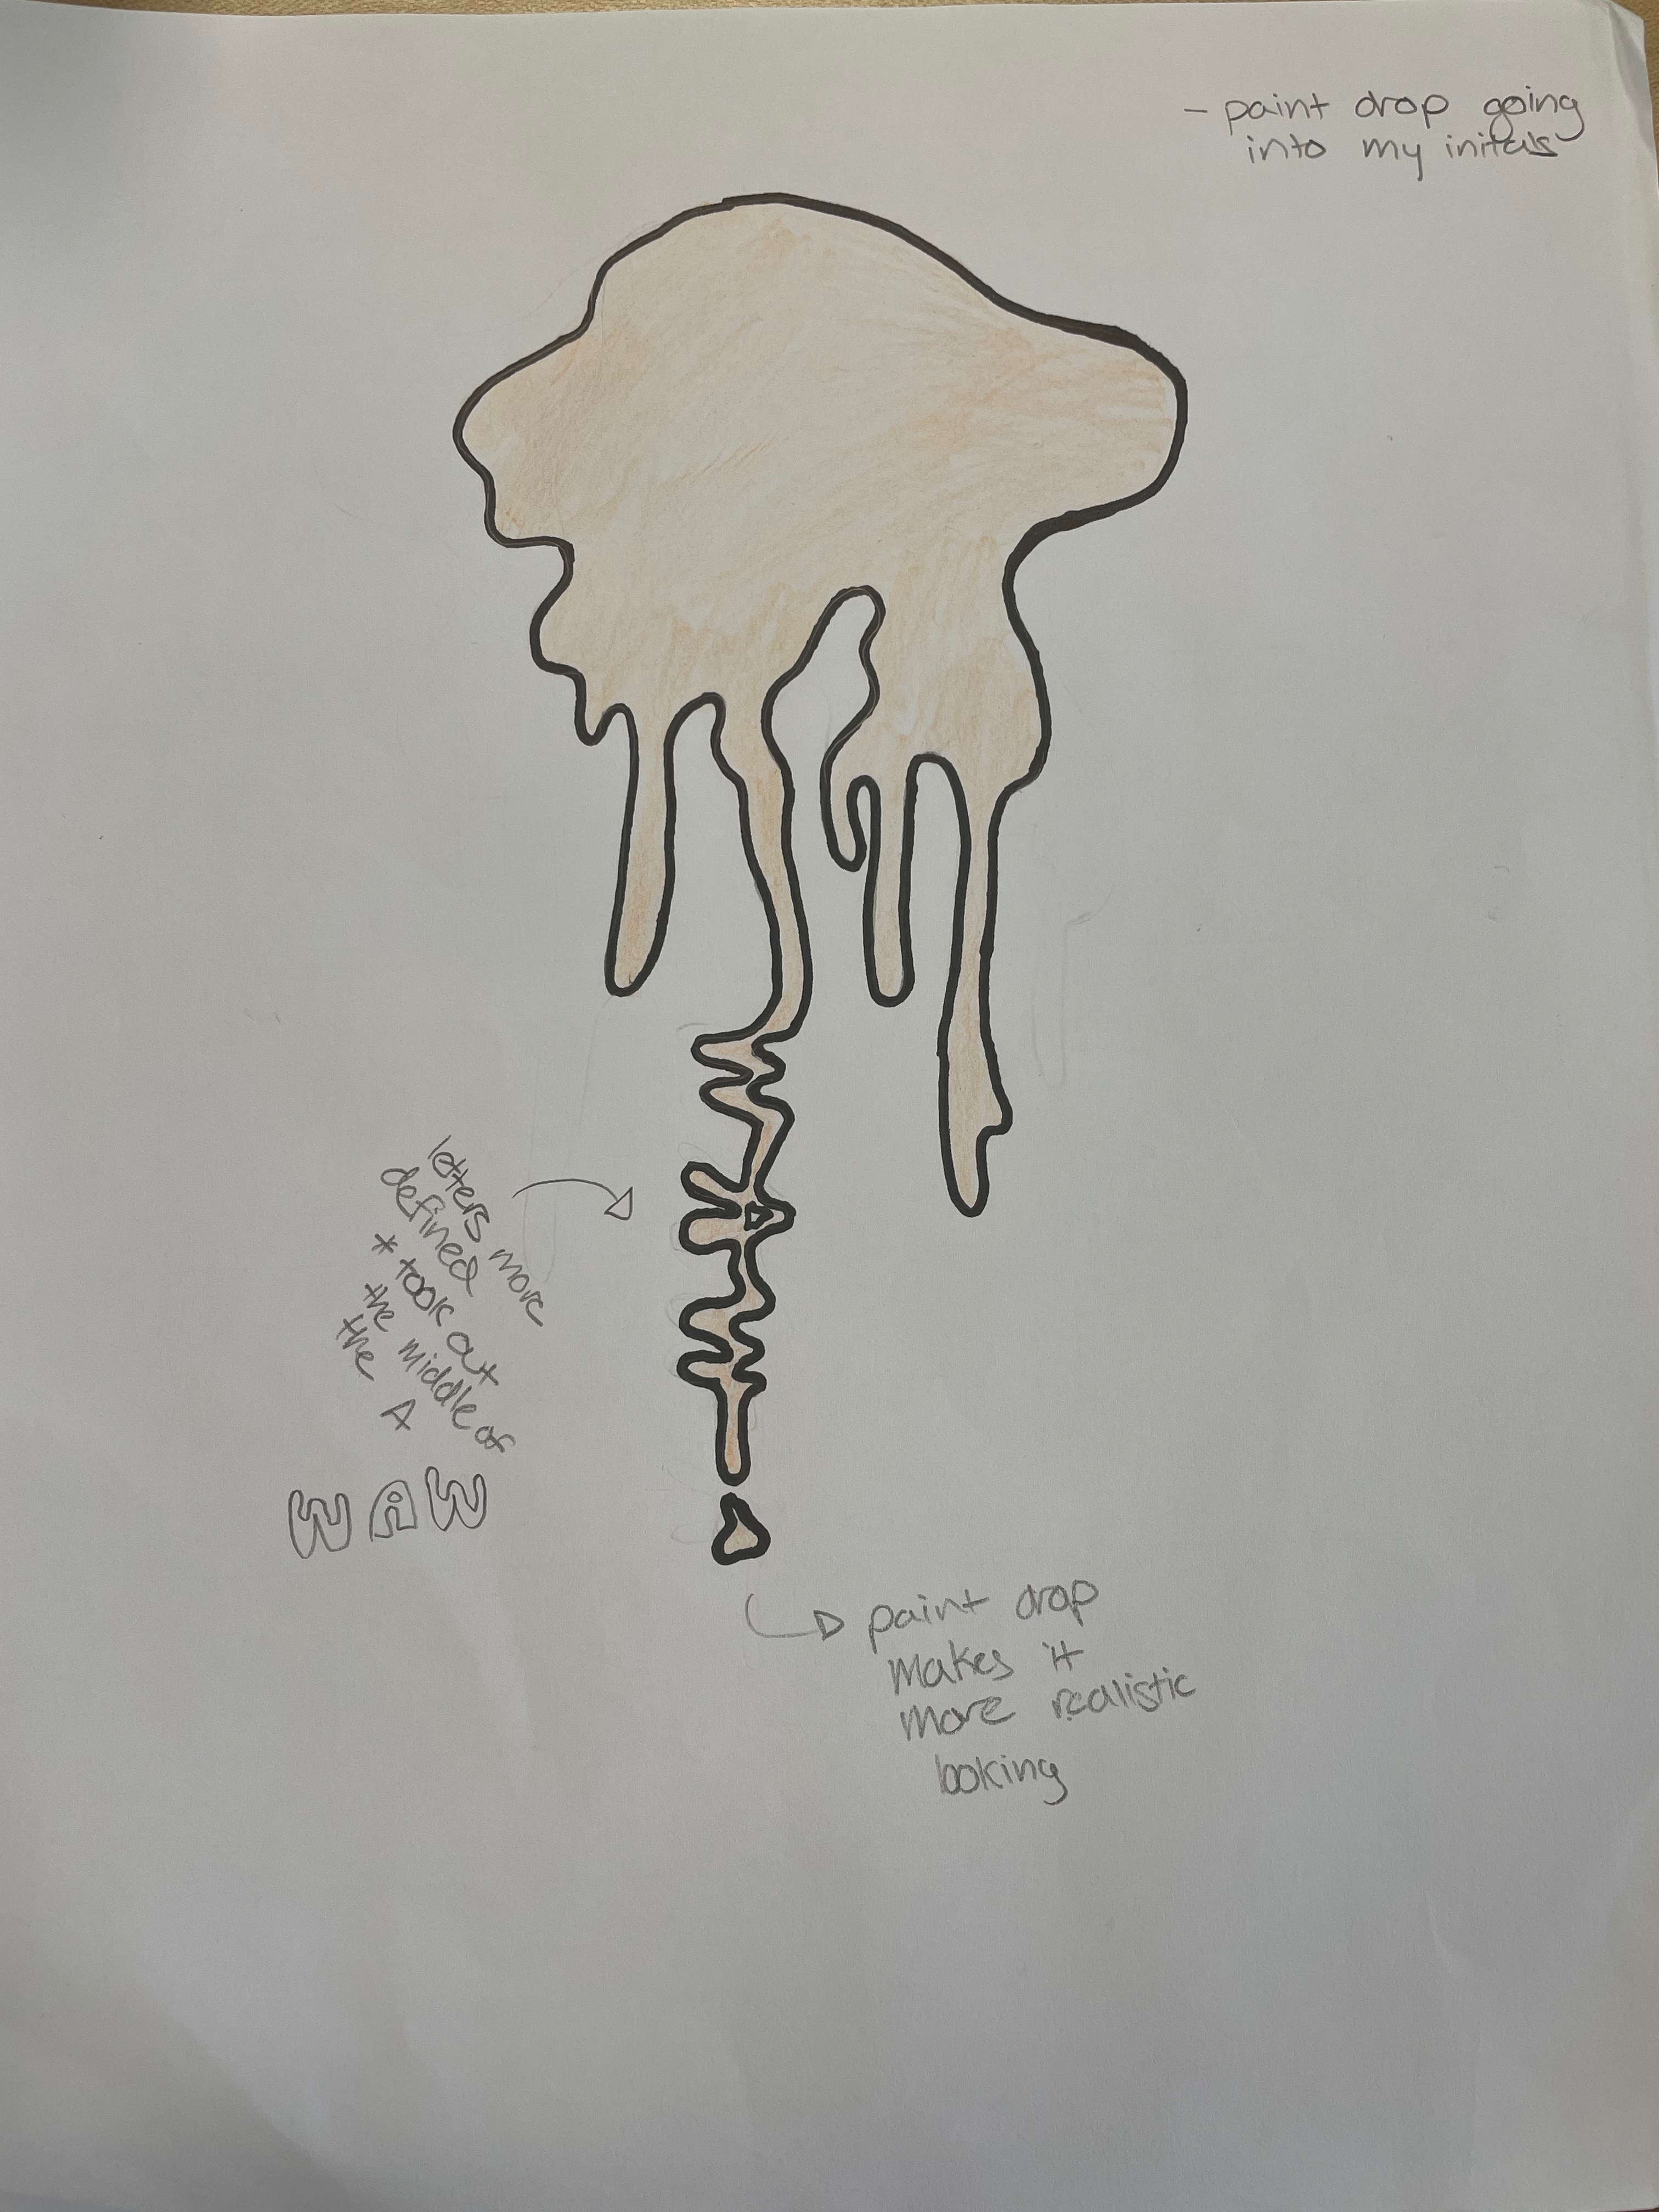 - paint drop going
into my initals
letters more
defined
* took out
the middle of
the A
WAW
paint drop
makes it
more realistic
looking